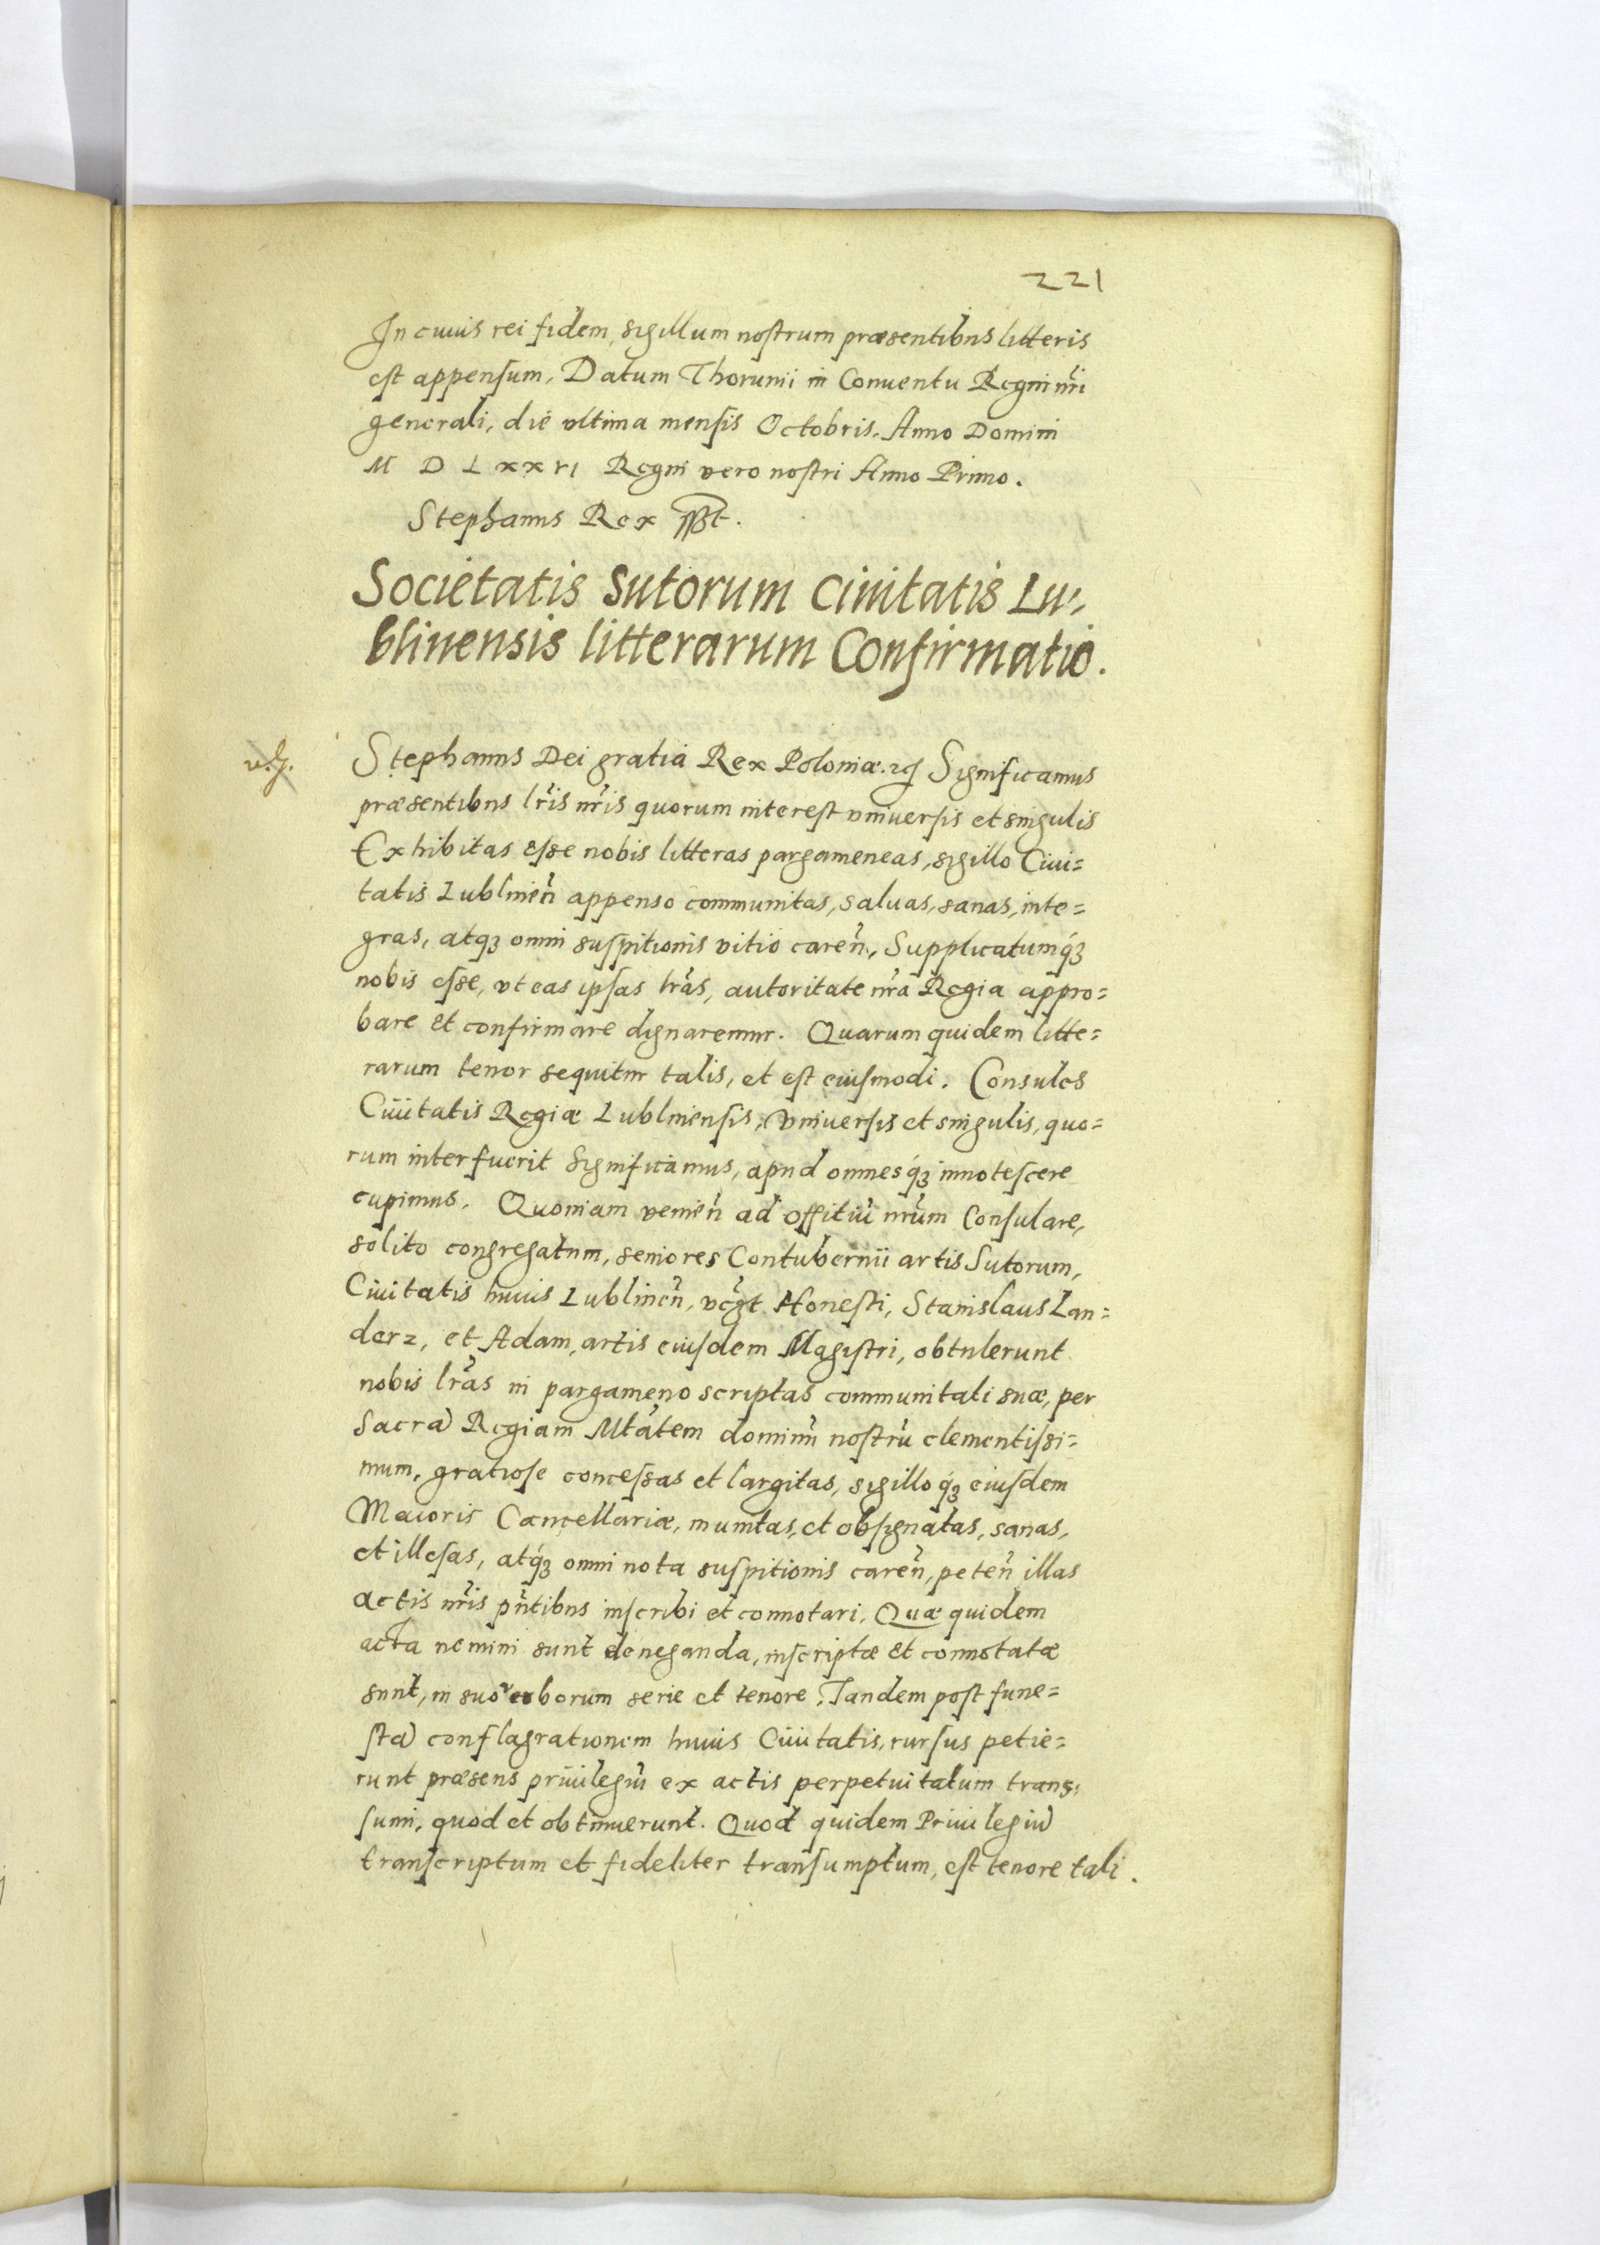 221
In cuius rei fidem, sigillum nostrum præsentibus litteris
est appensum, Datum Thorunii in Conuentu Regni nr̃i
generali, die vltima mensis Octobris. Anno Domini
M D L xx vi Regni vero nostri Anno Primo.
Stephanus Rex
Societatis Sutorum Ciuitatis Lu-
blinensis litterarum Confirmatio.
Stephanus Dei gratia Rex Poloniæ. Significamus
præsentibus lr̃is nr̃is quorum interest vniuersis et singulis
Exhibitas esse nobis litteras pargameneas, sigillo Ciui=
tatis Lublineñ appenso communitas, saluas, sanas, inte=
gras, atqꝫ omni suspitionis vitio careñ, Supplicatumqꝫ
nobis esse, vt eas ipsas lr̃as, autoritate nr̃a Regia appro=
bare et confirmare dignaremur. Quarum quidem litte=
rarum tenor sequitur talis, et est eiusmodi. Consules
Ciuitatis Regiæ Lublinensis, Vniuersis et singulis, quo=
rum interfuerit Significamus, apud omnesqꝫ innotescere
cupimus. Quoniam venieñ ad offitiũ nr̃um Consulare,
solito congregatum, seniores Contubernii artis Sutorum,
Ciuitatis huius Lublineñ, vcg̃t Honesti, Stanislaus Lan=
derz, et Adam, artis eiusdem Magistri, obtulerunt
nobis lr̃as in pargameno scriptas communitati suæ, per
Sacrã Regiam Mtãtem dominũ nostrũ clementissi=
mum, gratiose concessas et largitas, sigilloqꝫ eiusdem
Maioris Cancellariæ, munitas, et obsignatas, sanas,
et illesas, atqꝫ omni nota suspitionis careñ, peteñ illas
actis nr̃is pñtibus inscribi et connotari. Quæ quidem
acta nemini sunt deneganda, inscriptæ et connotatæ
sunt, in suo verborum serie et tenore. Tandem post fune=
stã conflagrationem huius Ciuitatis, rursus petie=
runt præsens priuilegiũ ex actis perpetuitatum trans-
sumi, quod et obtinuerunt. Quod quidem Priuilegiũ
transcriptum et fideliter transumptum, est tenore tali.